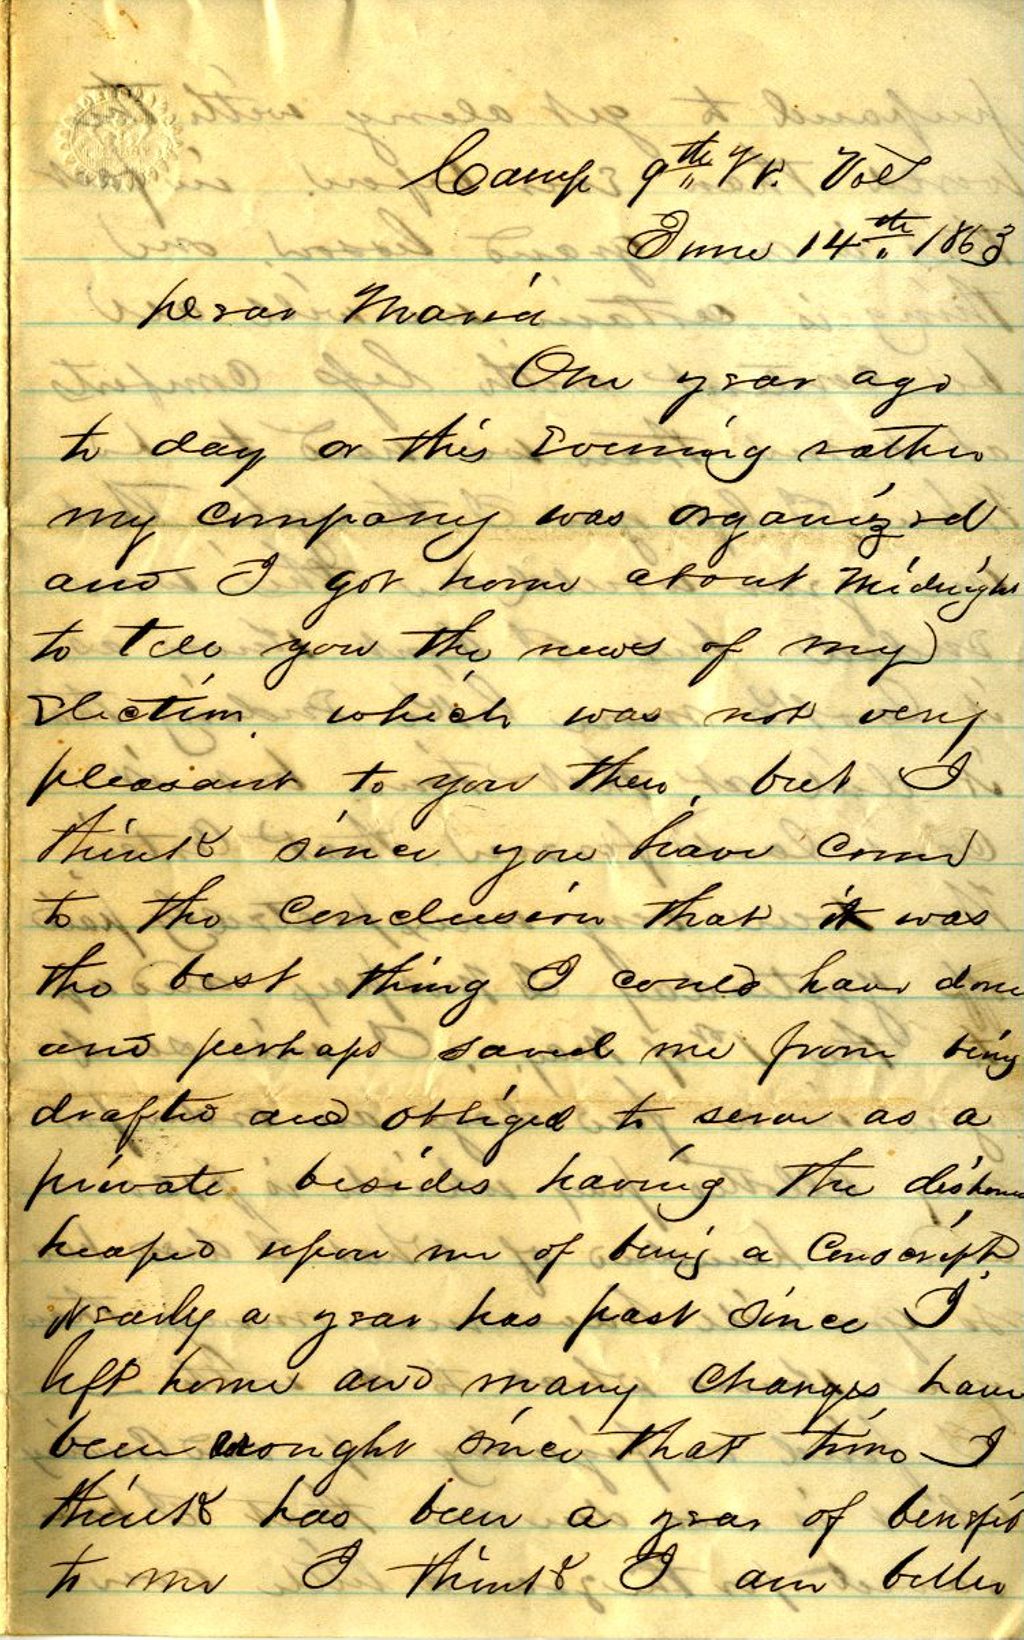 Camp 9th Vt. Vol
June 14th 1863
Dear Maria
One year ago
to day or this Evening rather
my company was organized
and I got home about Midnight
to tell you the news of my
Election which was not very
pleasant to you then, but I
think since you have come
to the conclusion that it was
the best thing I could have done
and perhaps saved me from being
drafted and obliged to serve as a
private besides having the dishonor
heaped upon me of being a Conscript
Nearly a year has past since I
left home and many changes have
been wrought since that time I
think has been a year of benefit
to me I think I am better